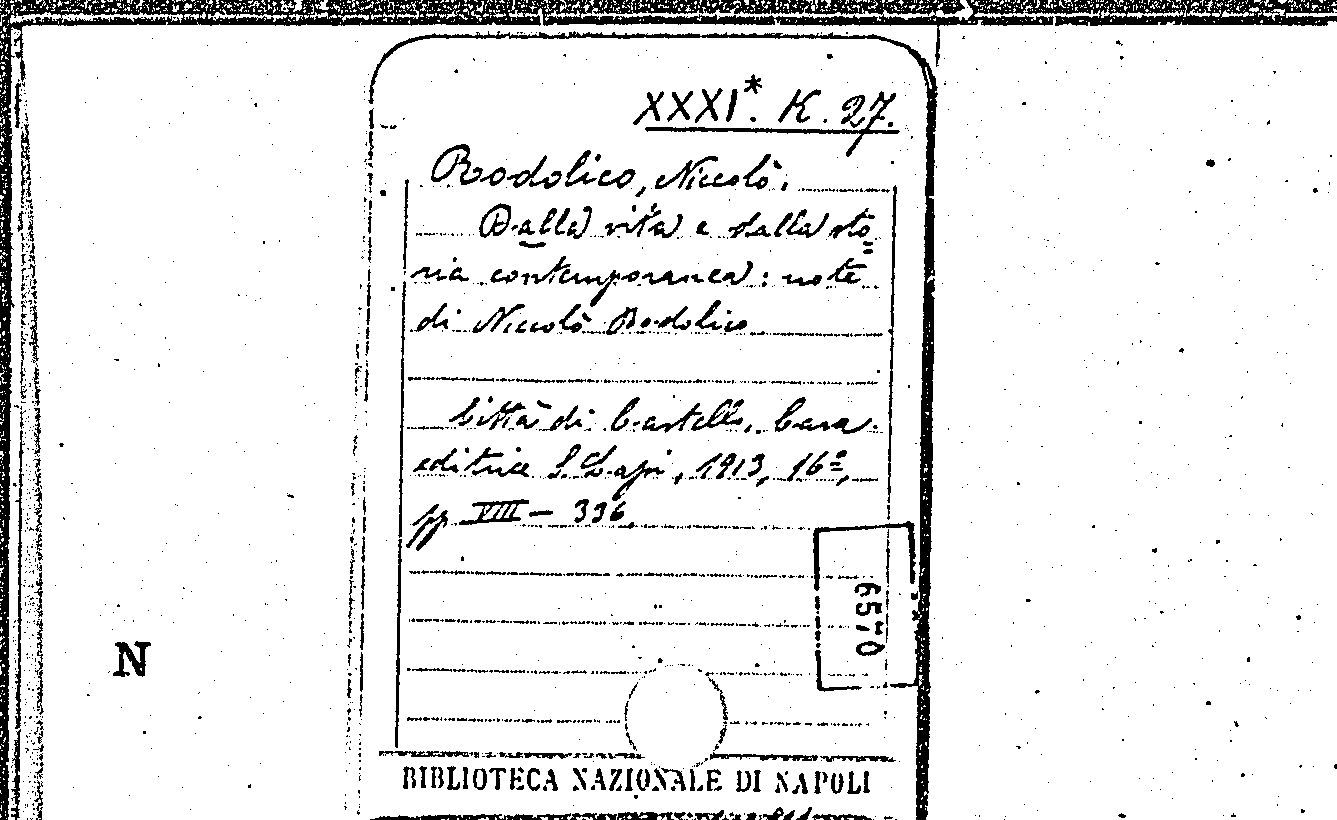 XXXI*. K. 27.
Rodolico, Niccolò.
Dalla vita e dalla sto=
ria contemporanea: note
di Niccolò Rodolico
Città di Castello, Casa
editrice S. Lapi, 1913, 16º,
pp VIII — 336.
6570
N
BIBLIOTECA NAZIONALE DI NAPOLI